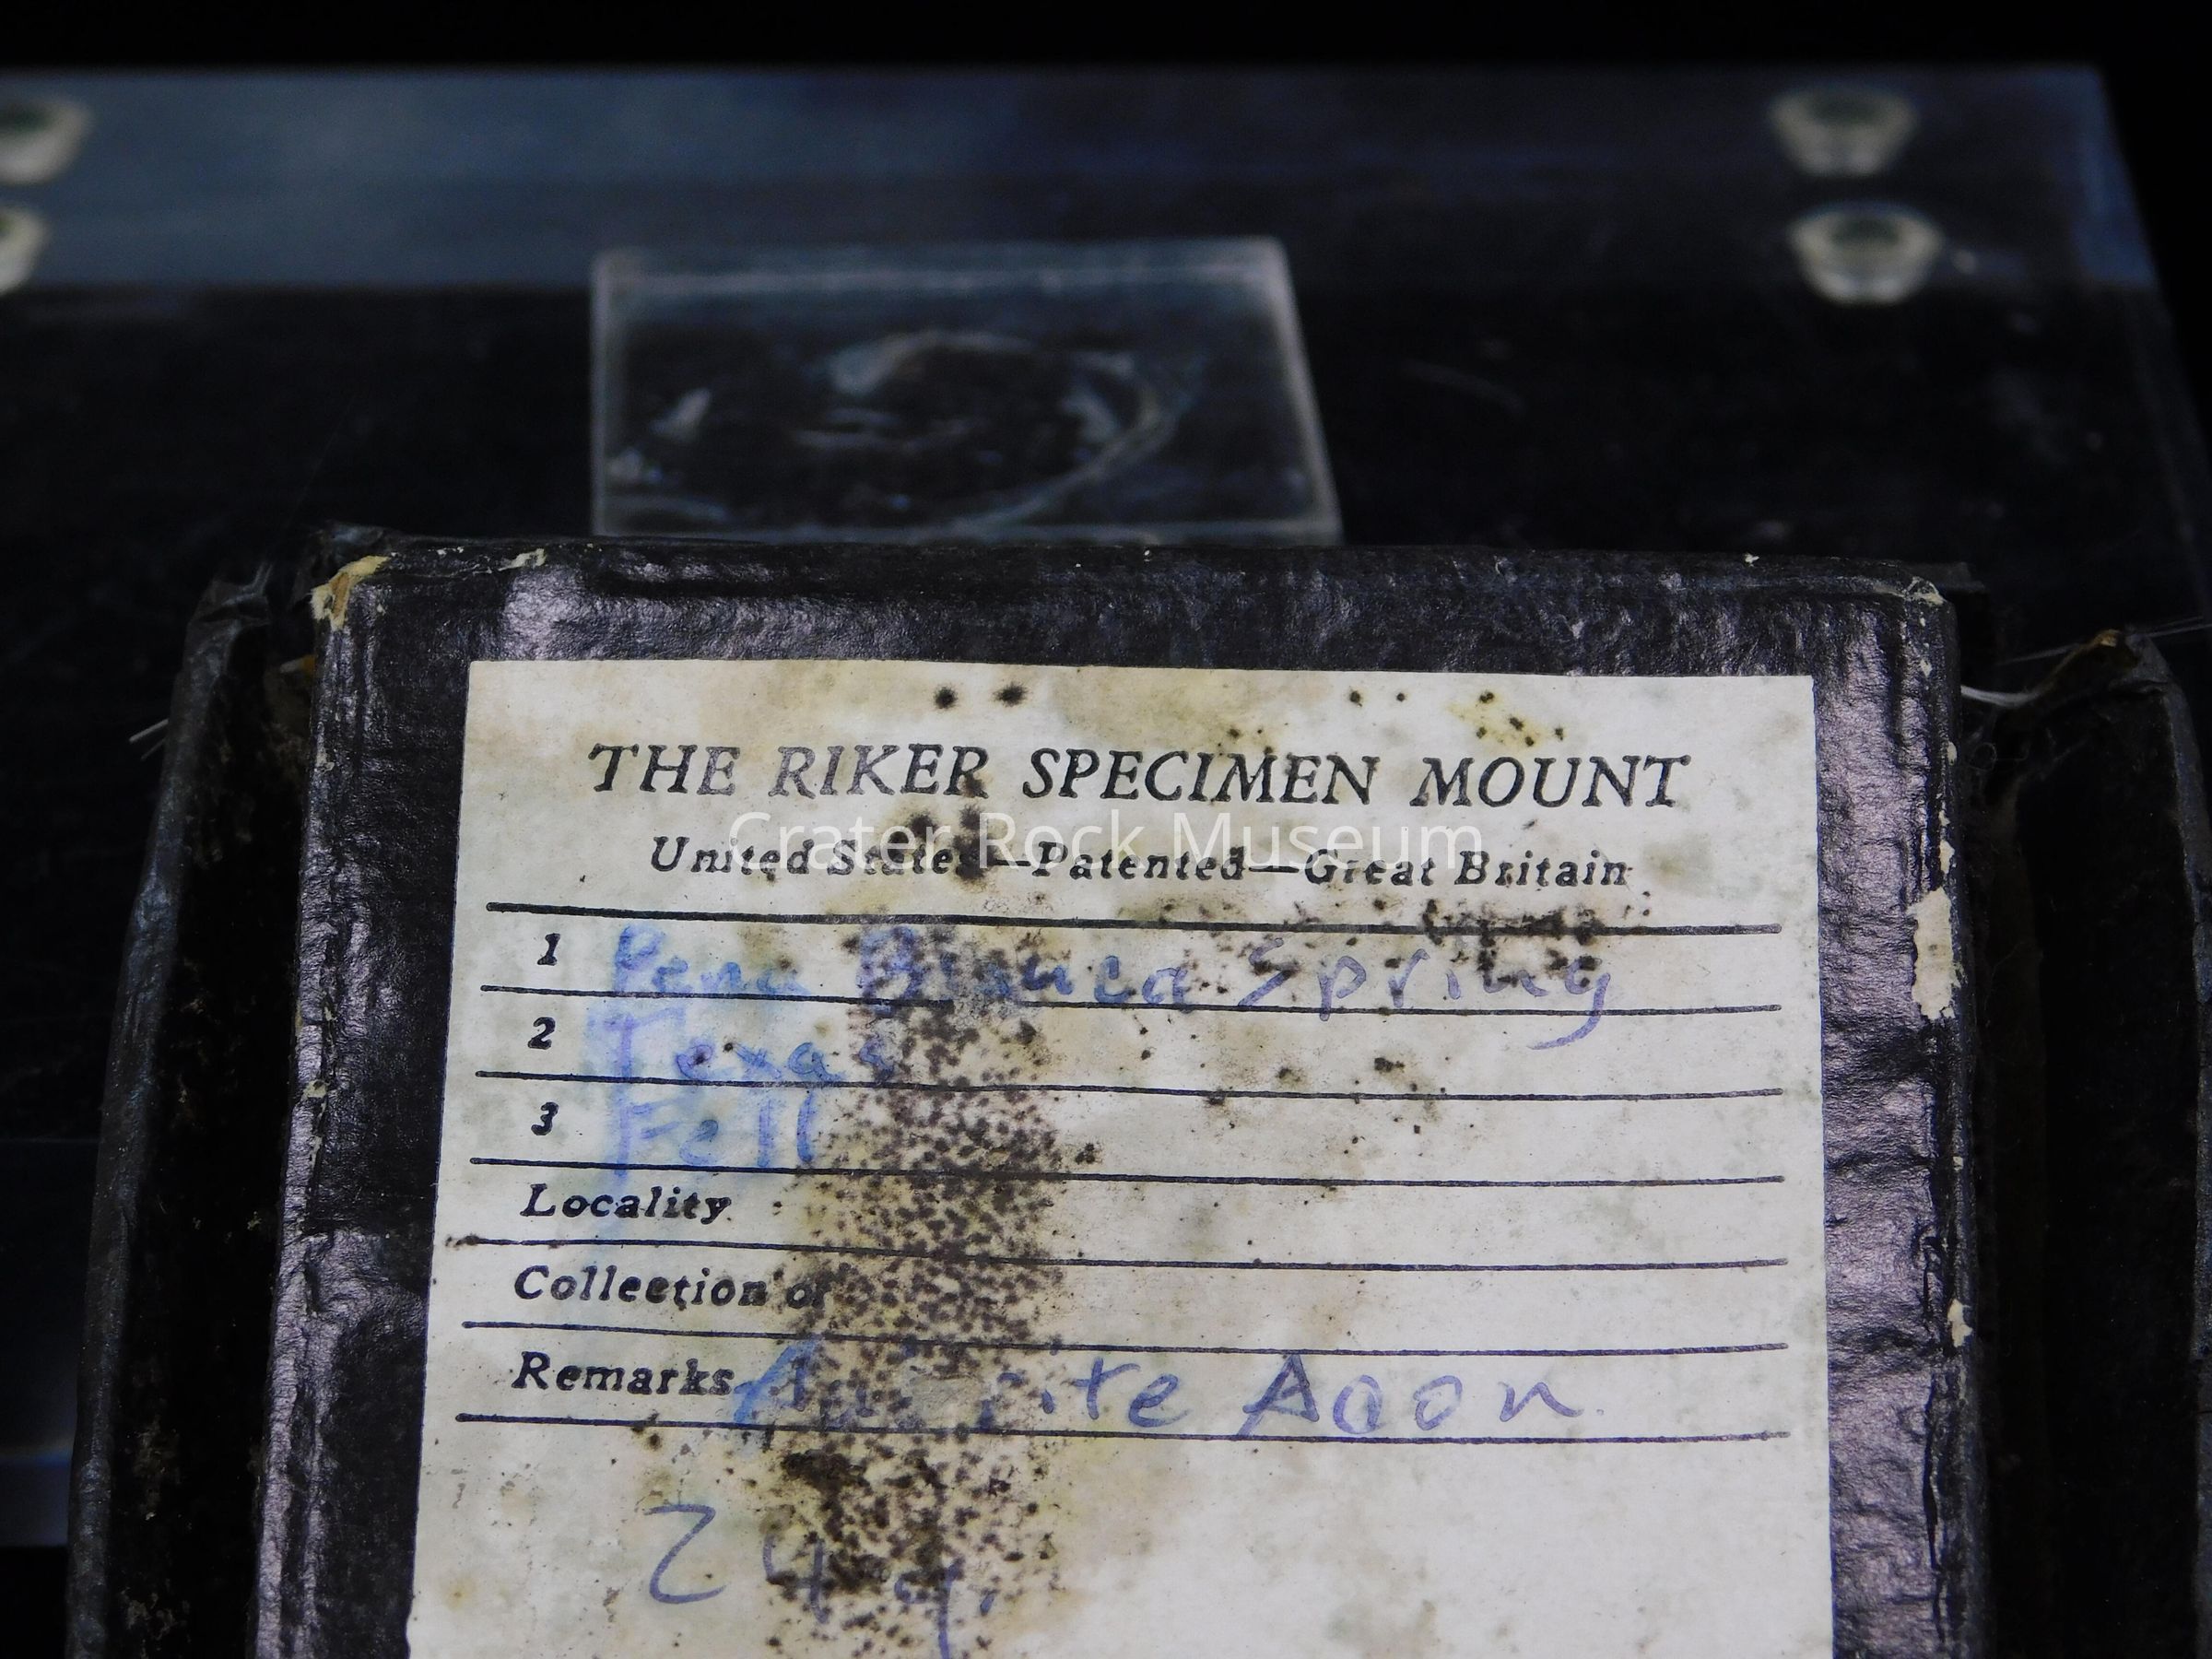 THE RIKER SPECIMEN MOUNT
Crater Rock Museum
United States—Patented—Great Britain
1 Pena Blanca Spring
2 Texas
3 Fell
Locality
Collection of
Remarks Aoon
24 g.